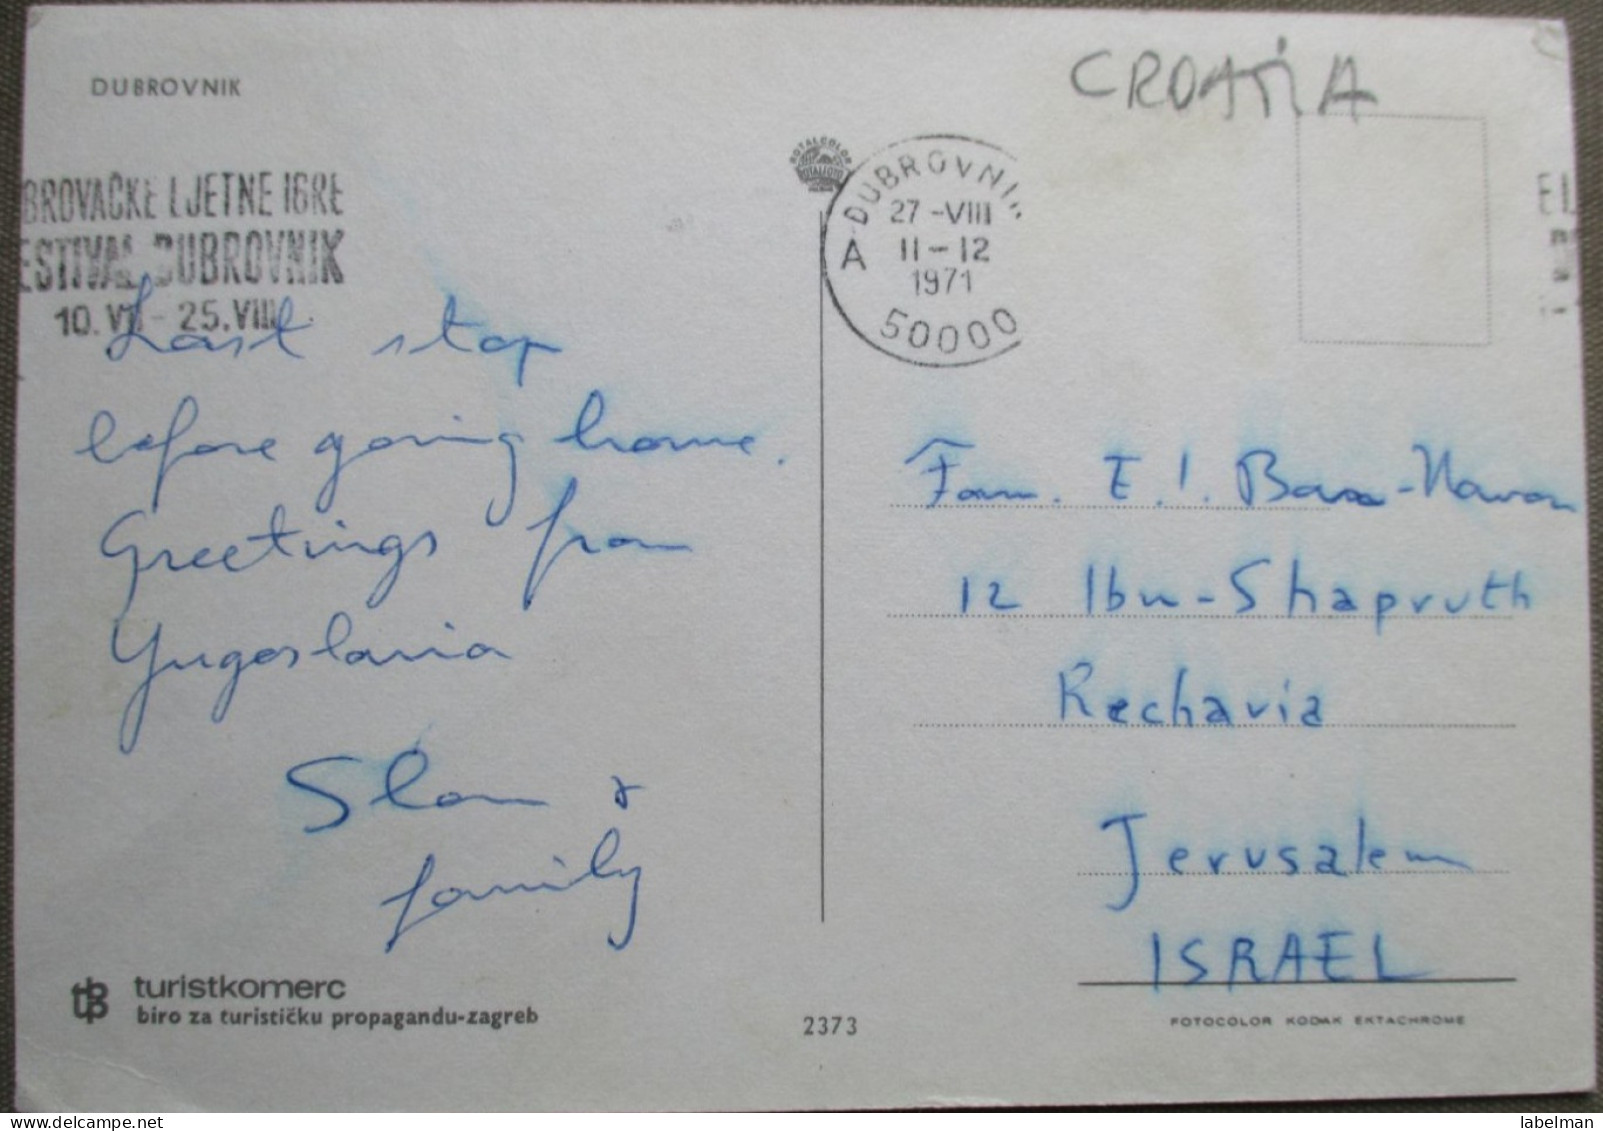 DUBROVNIK
CROATIA
BROVAČKE LJETNE IGRE
ESTIVAL DUBROVNIK
10. VII - 25. VIII.
ROTALCOLOR
DUBROVNIK
27 -VIII
A 11-12
1971
50000
Last stop
before going home.
Greetings from
Yugoslavia
&
family
Fam. E.I.
12 Ibn-Shapruth
Rechavia
Jerusalem
ISRAEL
turistkomerc
biro za turističku propagandu-zagreb
2373
FOTOCOLOR KODAK EKTACHROME
labelman
www.delcampe.net